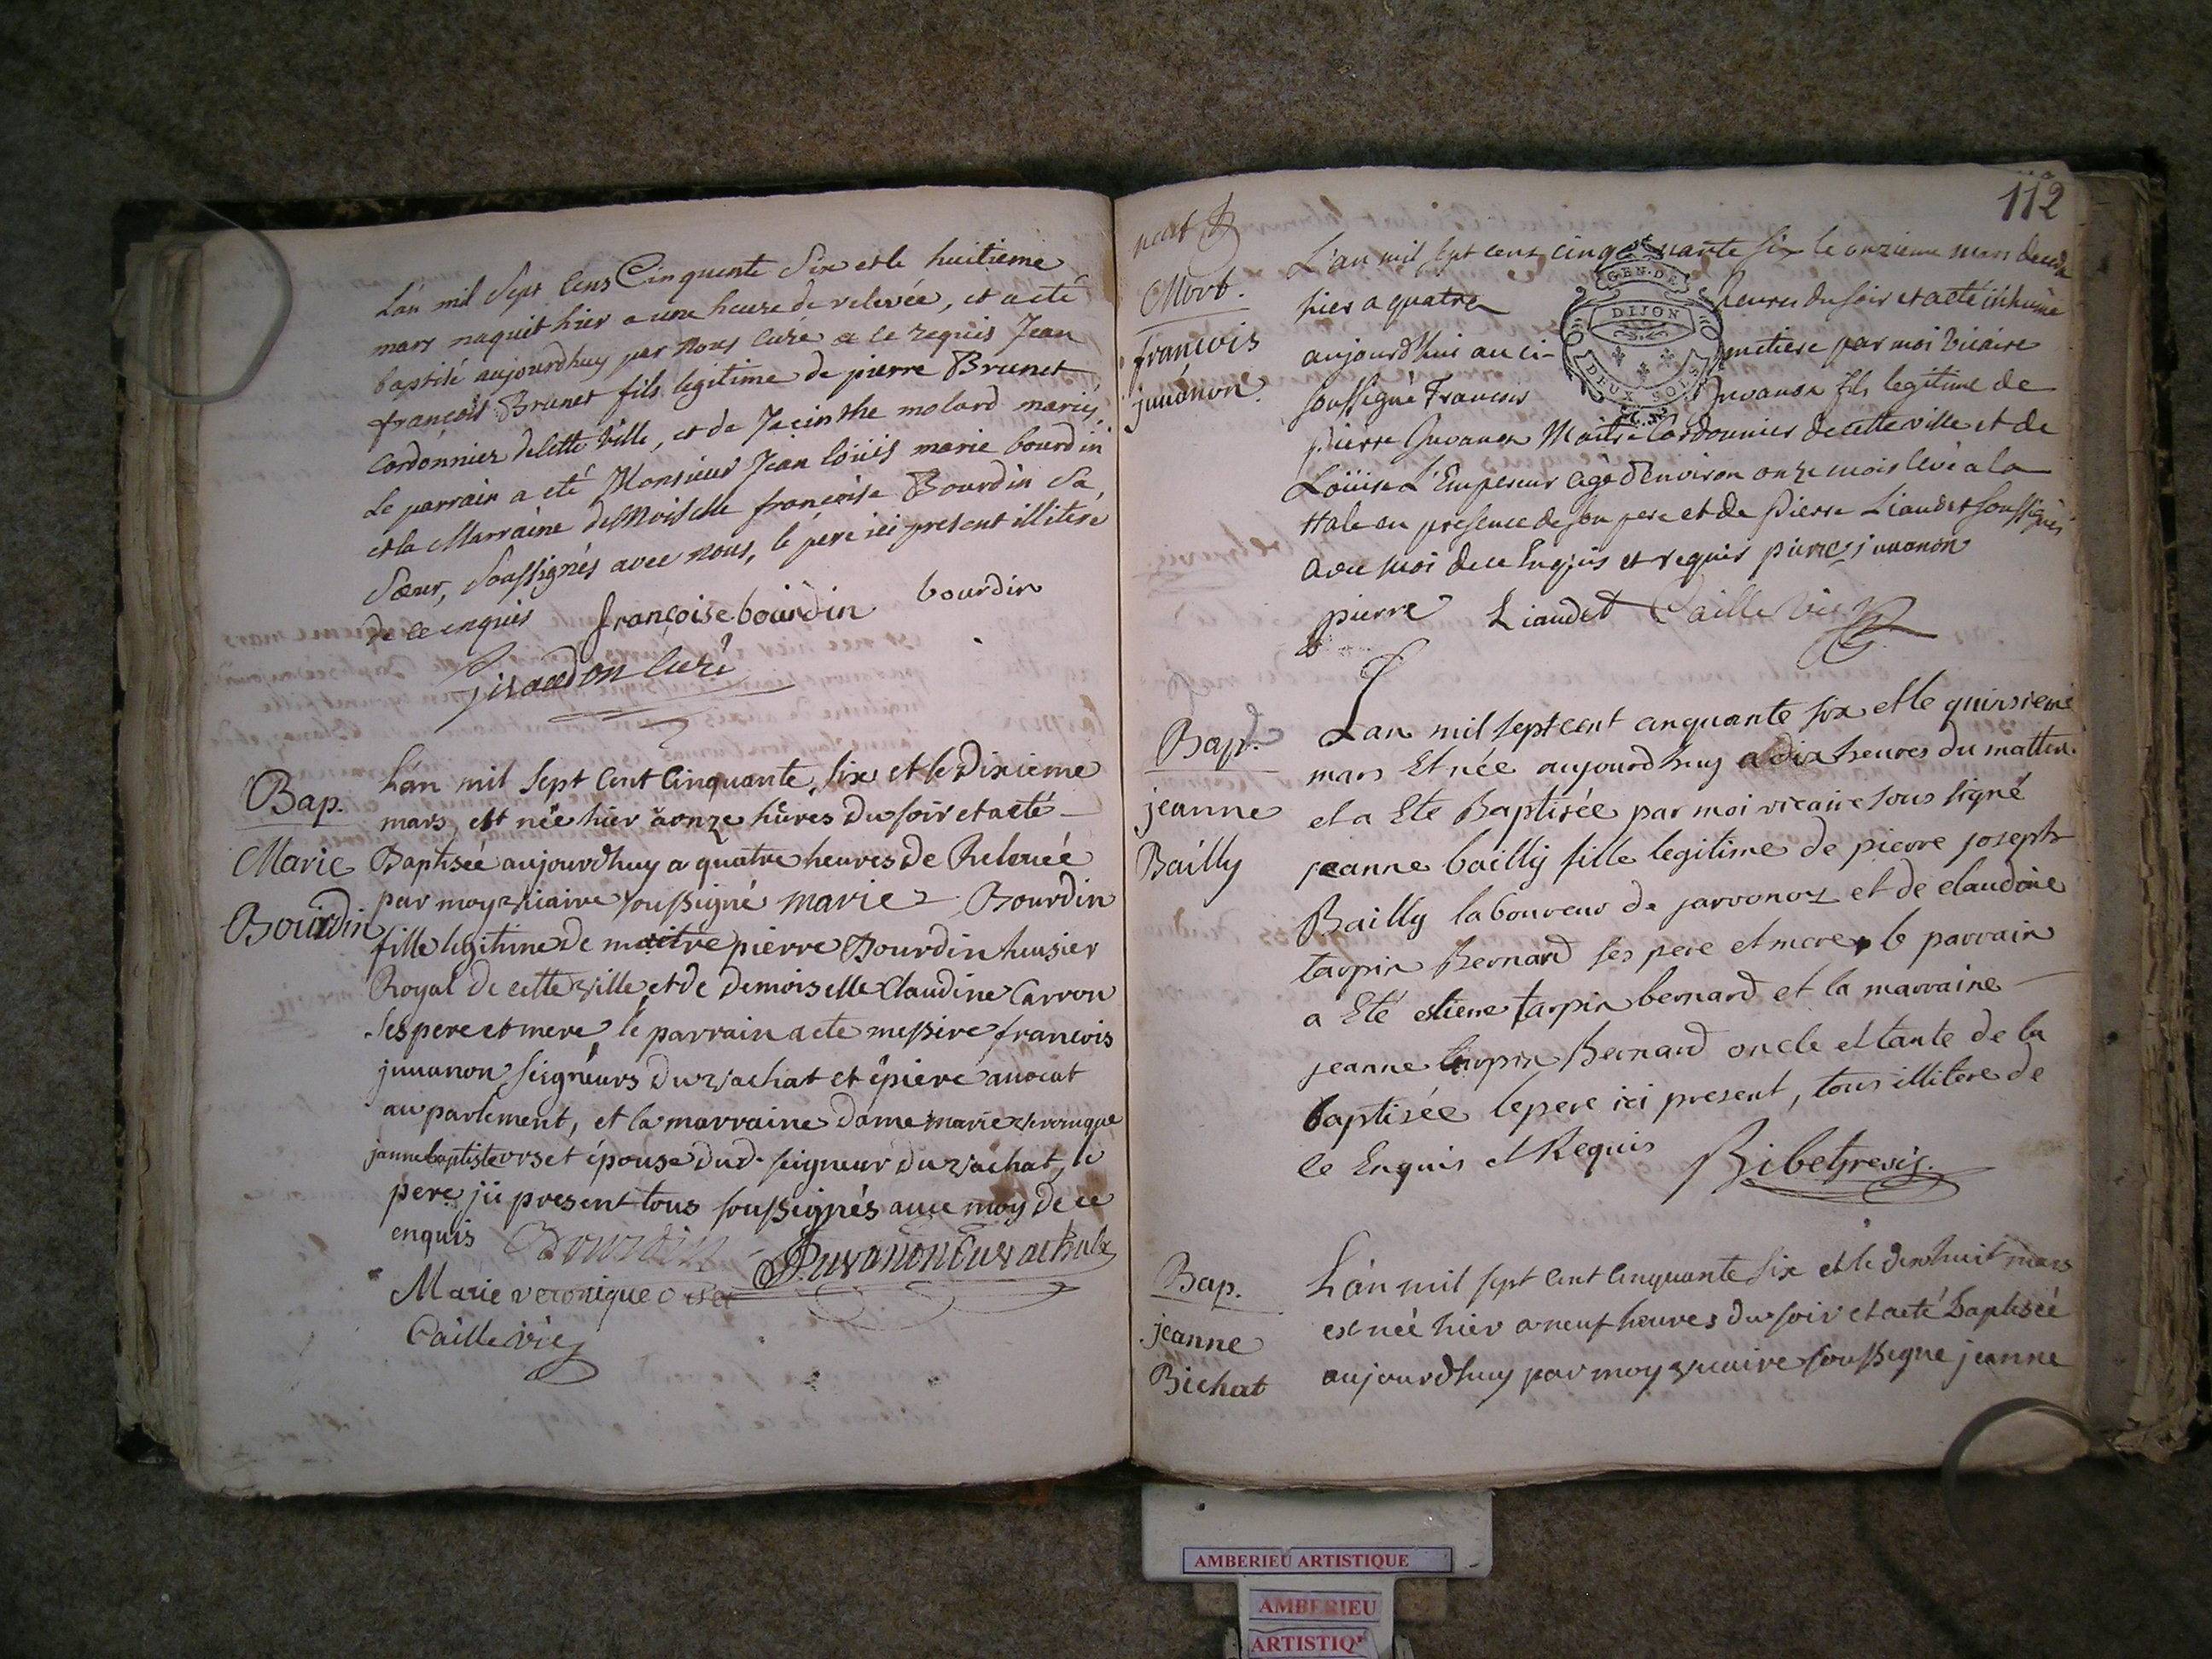 L'an mil Sept Cens Cinquente Six et le huitieme
mars naquit hier a une heure de relevée, et a eté
baptisé aujourdhuy par nous curé a ce requis Jean
françois Brunet fils legitime de pierre Brunet
Cordonnier de cette Ville, et de Jacinthe molard mariés
Le parrain a eté Monsieur Jean loüis marie bourdin
et la Marraine deMoiselle françoise Bourdin Sa
Sœur, Soussignés avec nous, le pere ici present illiteré
de ce enquis françoise bourdin bourdin
Giraudon Curé
Bap.
Marie
Bourdin
L'an mil Sept Cent Cinquante, six et le Dixieme
mars, est née hier à onze hûres Du soir et a eté
Baptisée aujourdhuy a quatre heures De Relevée
par moy vicaire soussigné marie Bourdin
fille legitime De maitre pierre Bourdin huisier
Royal De cette ville et de Demoiselle Claudine Carron
Ses pere et mere, le parrain a ete messire francois
juuanon seigneurs Du vachat et épiere auocat
au parlement, et la marraine Dame marie veronique
janne baptiste orset épouse Dud. seigneur Du vachat, le
pere ici present tous soussignés auec moy De ce
enquis Bourdin Juvanon Duvachat
Marie veronique orset
Caille vic
112
Mort.
francois
juuanon
L'an mil sept cent cinquante six le onzieme mars decede
hier a quatre heures du soir et a eté inhumé
aujourd'hui au cimetiere par moi Vicaire
soussigné Francois Juvanon fils legitime de
pierre Juvanon Maitre Cordonnier de cette ville et de
Loüise L'Empereur agé d'Environ onze mois levé a la
Hale en presence de son pere et de Pierre Liaudet soussignés
avec moi de ce Enquis et requis pierre juuanon
pierre Liaudet Caille vic
GEN. DE
DIJON
DEUX SOLS
Bap.
jeanne
Bailly
Lan mil sept cent cinquante six et le quinsieme
mars Et née aujourdhuy a dix heures du mattin
et a Ete Baptisée par moi vicaire sous signé
jeanne bailly fille legitime de pierre joseph
Bailly laboureur de jarvonoz et de claudine
tarpin Bernard ses pere et mere, le parrain
a Eté etiene tarpin bernard et la marraine
jeanne tarpin Bernard oncle et tante de la
baptisée le pere ici present, tous illitere de
ce Enquis et Requis Ribet
Bap.
jeanne
Bichat
L'an mil sept Cent Cinquante six et le dixhuit mars
est née hier a neuf heures Du soir et a eté Baptisée
aujourdhuy par moy vicaire soussigne jeanne
AMBERIEU ARTISTIQUE
AMBERIEU
ARTISTIQ